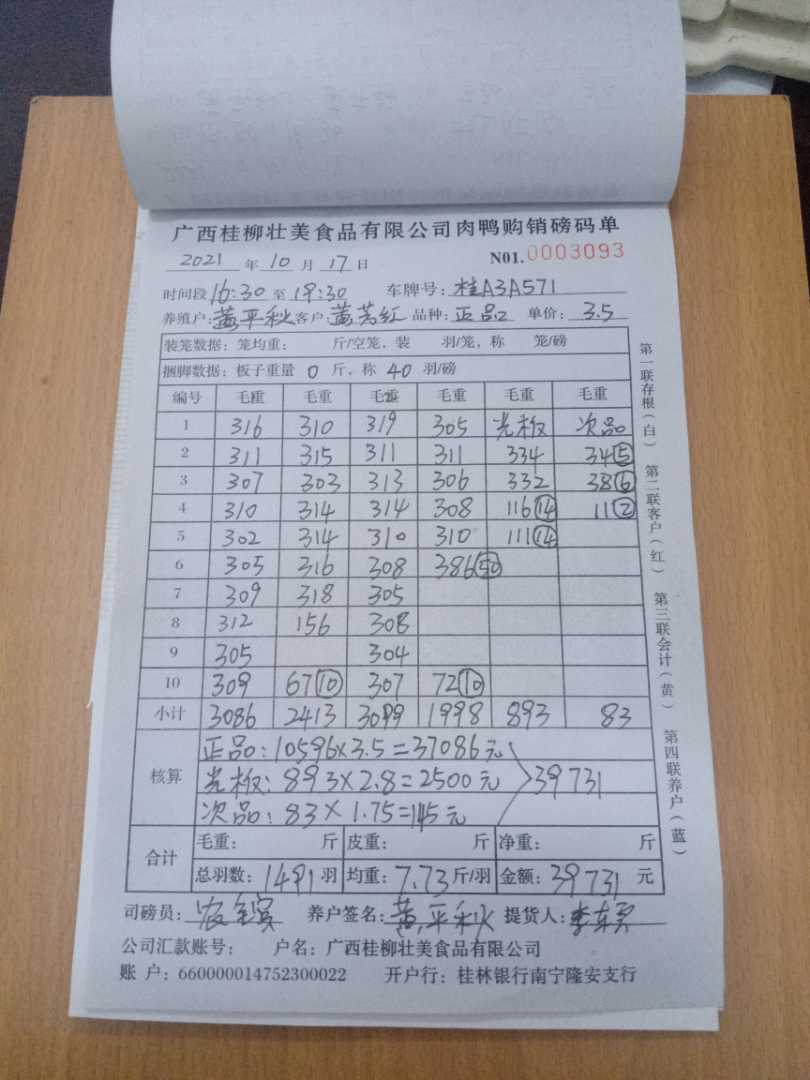 广西桂柳壮美食品有限公司肉鸭购销磅码单
2021 年 10 月 17 日 N01.0003093
时间段 16:30 至 19:30 车牌号: 桂A3A571
养殖户: 黄平秋 客户: 黄芳红 品种: 正品 单价: 3.5
装笼数据: 笼均重: 斤/空笼, 装 羽/笼, 称 笼/磅
捆脚数据: 板子重量 0 斤, 称 40 羽/磅
编号 毛重 毛重 毛重 毛重 毛重 毛重
1 316 310 319 305 光板 次品
2 311 315 311 311 334 34⑤
3 307 303 313 306 332 38⑥
4 310 314 314 308 116⑭ 11②
5 302 314 310 310 111⑭
6 305 316 308 386㊿
7 309 318 305
8 312 156 308
9 305 304
10 309 67⑩ 307 72⑩
小计 3086 2413 3099 1998 893 83
核算
正品: 10596×3.5=37086元
光板: 893×2.8=2500元 39731
次品: 83×1.75=145元
合计
毛重: 斤 皮重: 斤 净重: 斤
总羽数: 1491 羽 均重: 7.73 斤/羽 金额: 39731 元
司磅员: 农 养户签名: 黄平秋 提货人: 李
公司汇款账号: 户名: 广西桂柳壮美食品有限公司
账 户: 660000014752300022 开户行: 桂林银行南宁隆安支行
第一联存根(白) 第二联客户(红) 第三联会计(黄) 第四联养户(蓝)